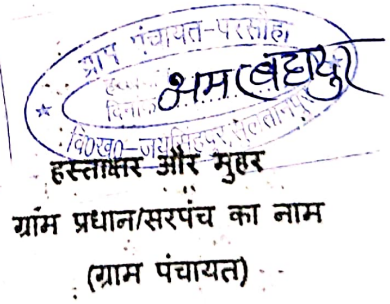 ग्राम पंचायत-परसोहा
हस्ता
दिनांक
राम बहादुर
वि०ख०-जयसिंहपुर, सुलतानपुर
हस्ताक्षर और मुहर
ग्राम प्रधान/सरपंच का नाम
(ग्राम पंचायत)